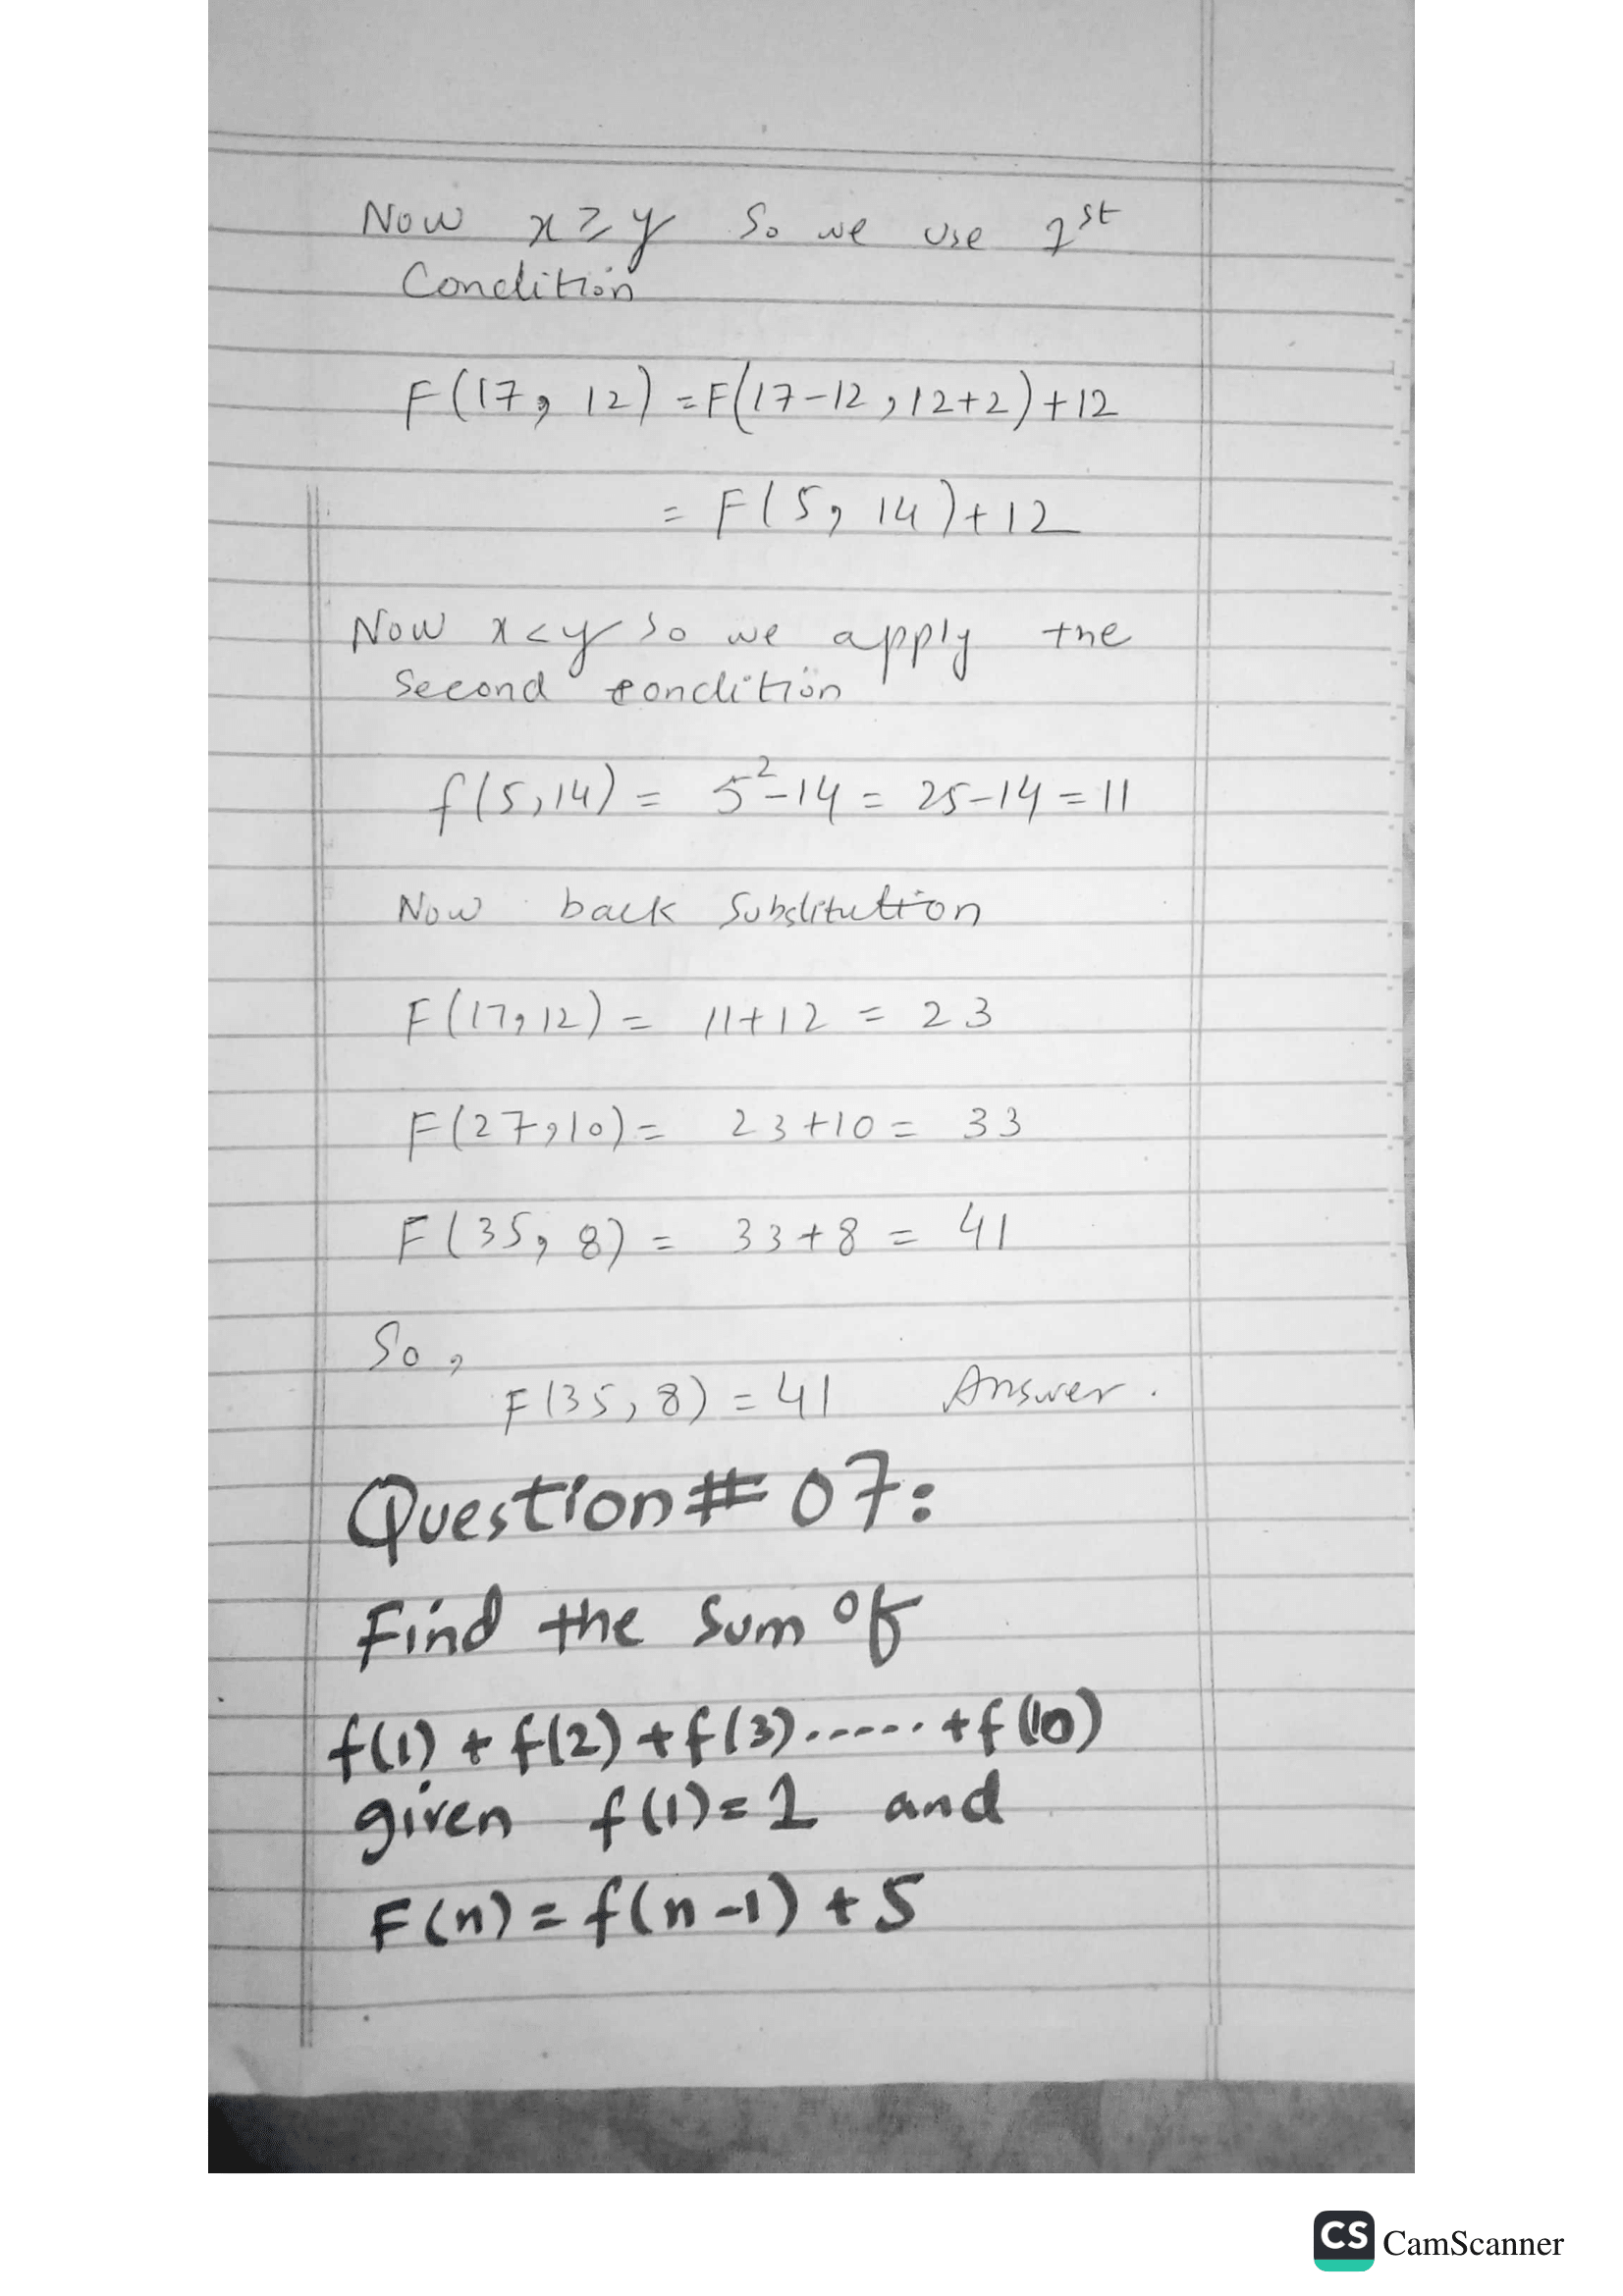 Now x ≥ y So we use 1st
Condition
F(17, 12) = F(17-12, 12+2) + 12
= F(5, 14) + 12
Now x < y so we apply the
Second condition
f(5,14) = 5²-14 = 25-14 = 11
Now back Substitution
F(17,12) = 11+12 = 23
F(27,10) = 23+10 = 33
F(35, 8) = 33+8 = 41
So,
F(35, 8) = 41 Answer.
Question# 07:
Find the Sum of
f(1) + f(2) + f(3)...... +f(10)
given f(1)=1 and
F(n) = f(n-1) + 5
CS CamScanner